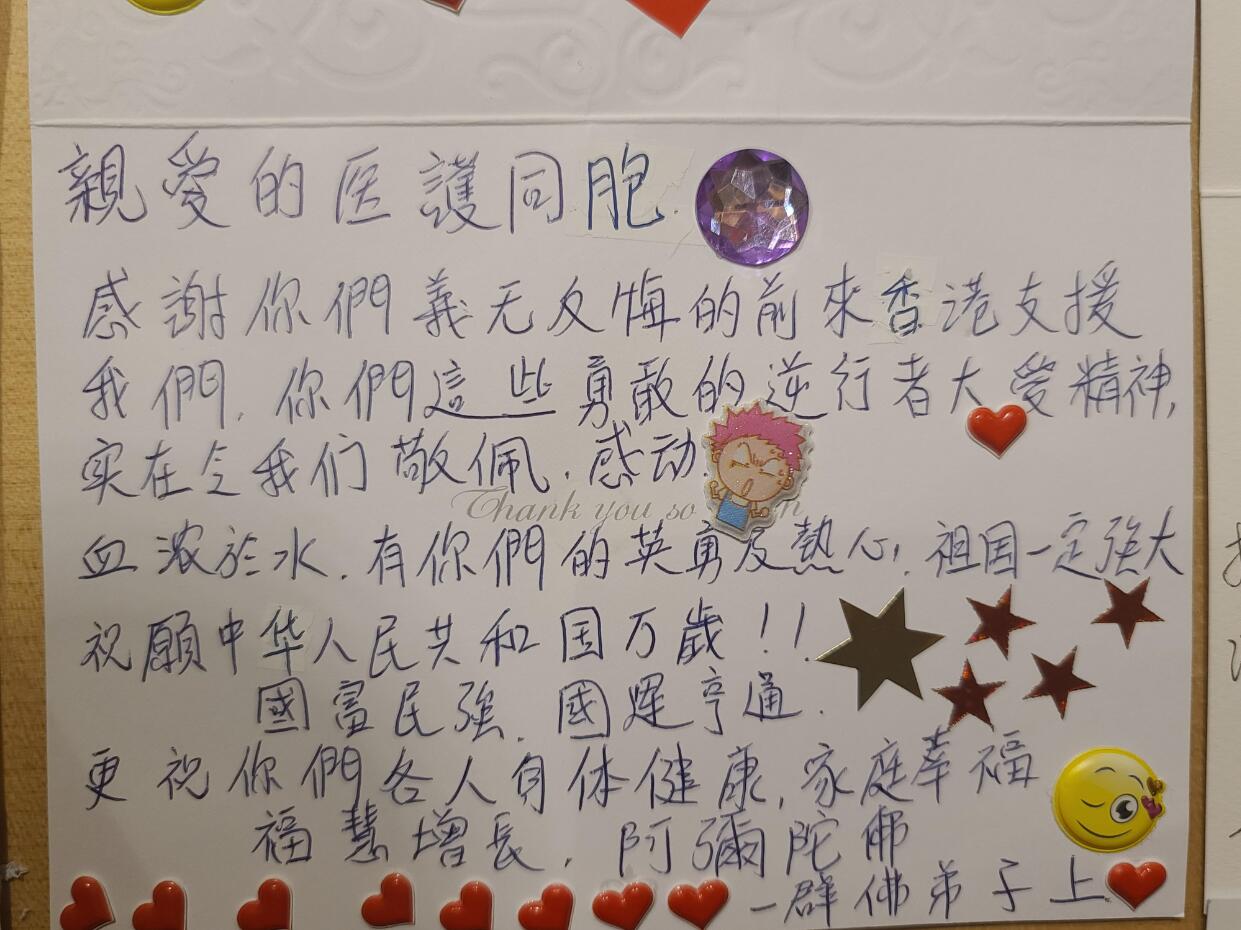 親愛的医護同胞.
感謝你們義无反悔的前來香港支援
我們,你們這些勇敢的逆行者大愛精神,
实在令我们敬佩.感动.
Thank you so
血浓於水.有你們的英勇及熱心,祖国一定強大
祝願中华人民共和国万歲!!
國富民強.國運亨通.
更祝你們各人身体健康,家庭幸福
福慧增長.阿彌陀佛
一群佛弟子上